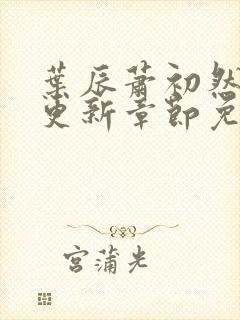 葉辰蕭初然
更新章節免
宮蒲光